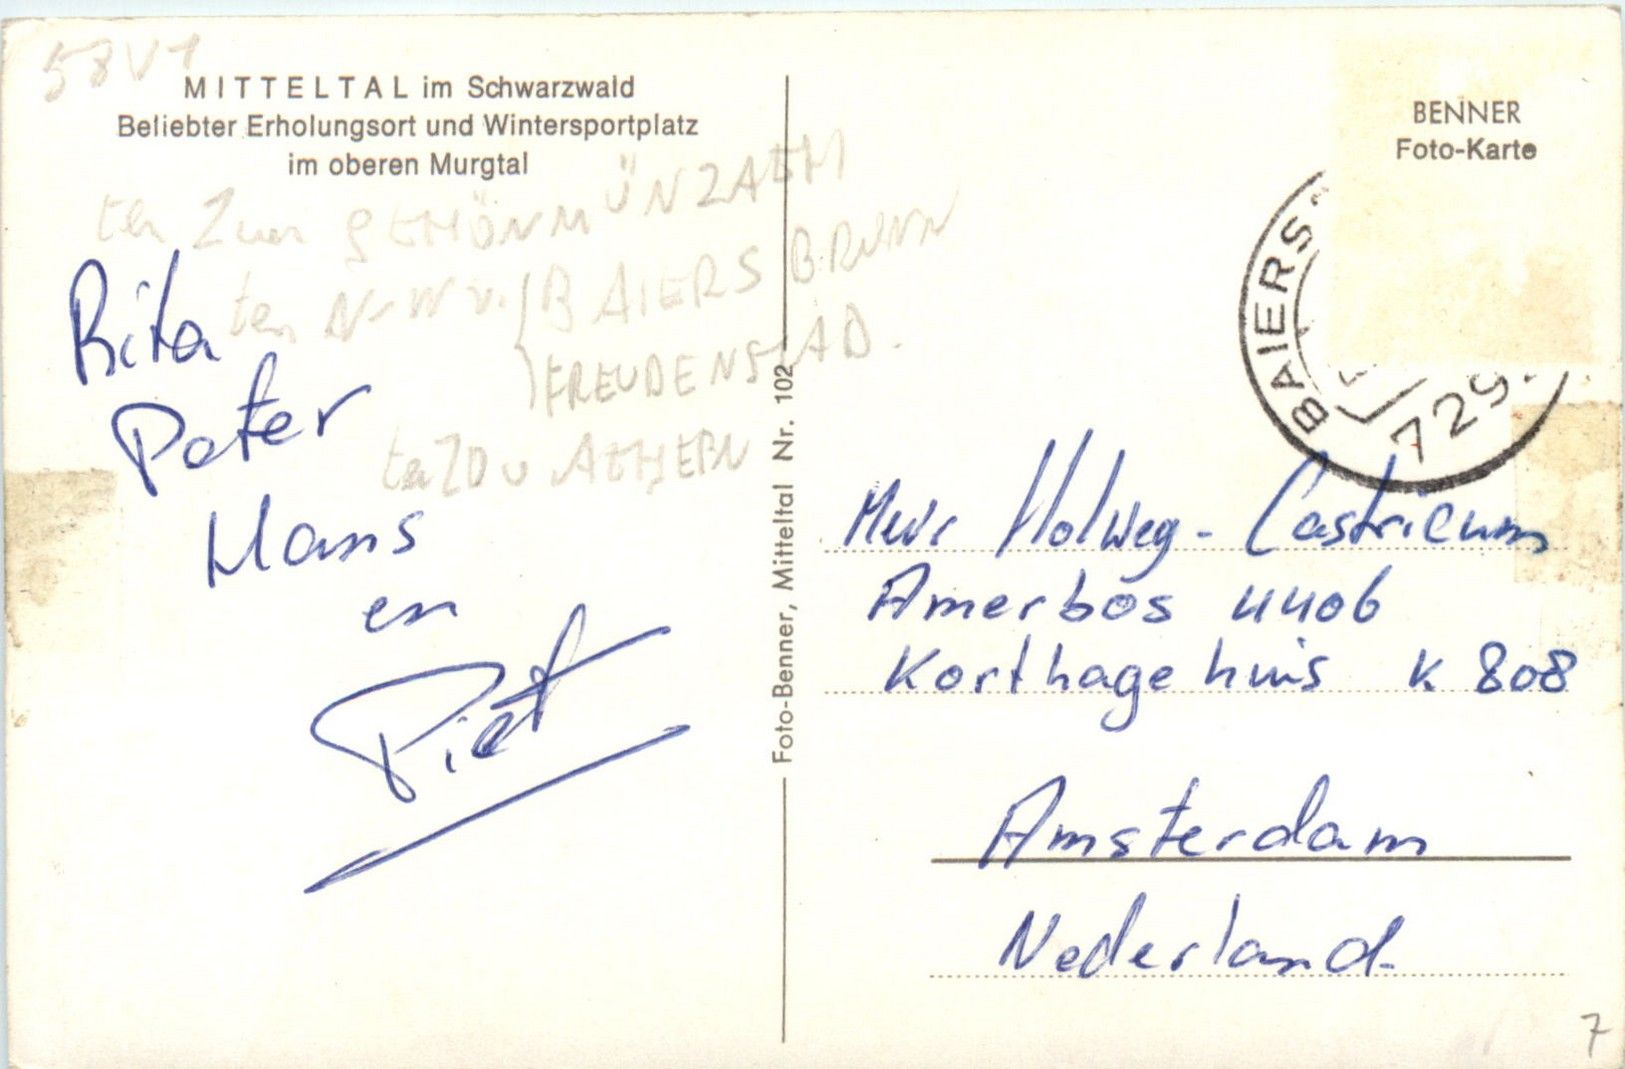 58 V 1
MITTELTAL im Schwarzwald
Beliebter Erholungsort und Wintersportplatz
im oberen Murgtal
ten Zum
ten N-W v. BAIERSBRUNN
FREUDENSTAD.
ten ZO v
Rita
Peter
Hans
en
Piet
Foto-Benner, Mitteltal Nr. 102
BENNER
Foto-Karte
BAIERS
729
Mevr Holweg - Castricum
Amerbos 4406
Korthagehuis K 808
Amsterdam
Nederland
7